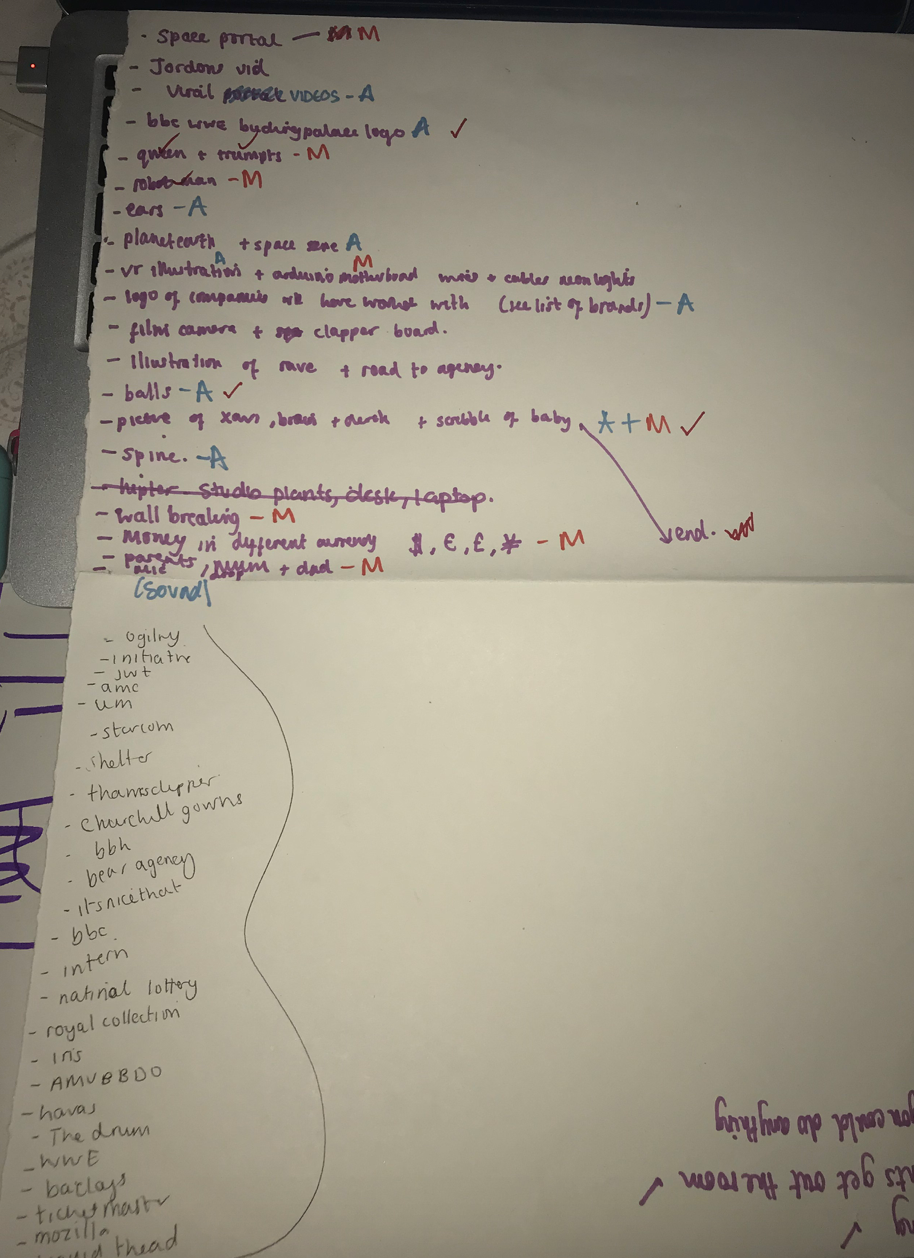 - space portal — M M
- Jordons vid
- Virail VIDEOS - A
- bbc wwe logo A ✓
- queen + trumpts - M
- robotman - M
- ears - A
- planet earth + space A
- vr illustrations A + arduino motherboard M + cables neon lights
- logo of companies have worked with (see list of brands) - A
- film camera + clapper board.
- illustration of rave + road to agency.
- balls - A ✓
- picture of + scribble of baby A + M ✓
- spine. - A
- hipter studio plants, desk, laptop.
- wall breaking - M
- Money in different currency $, €, £, ¥ - M
end.
- parents, mum + dad - M
- mic
(sound)
- ogilvy
- initiative
- jwt
- amc
- um
- starcom
- shelter
- thamesclipper
- churchill gowns
- bbh
- bear agency
- itsnicethat
- bbc.
- intern
- national lottery
- royal collection
- iris
- AMVBBDO
- havas
- The drum
- WWE
- barclays
- ticketmaster
- mozilla
thead
you could do anything
get out the room ✓
✓